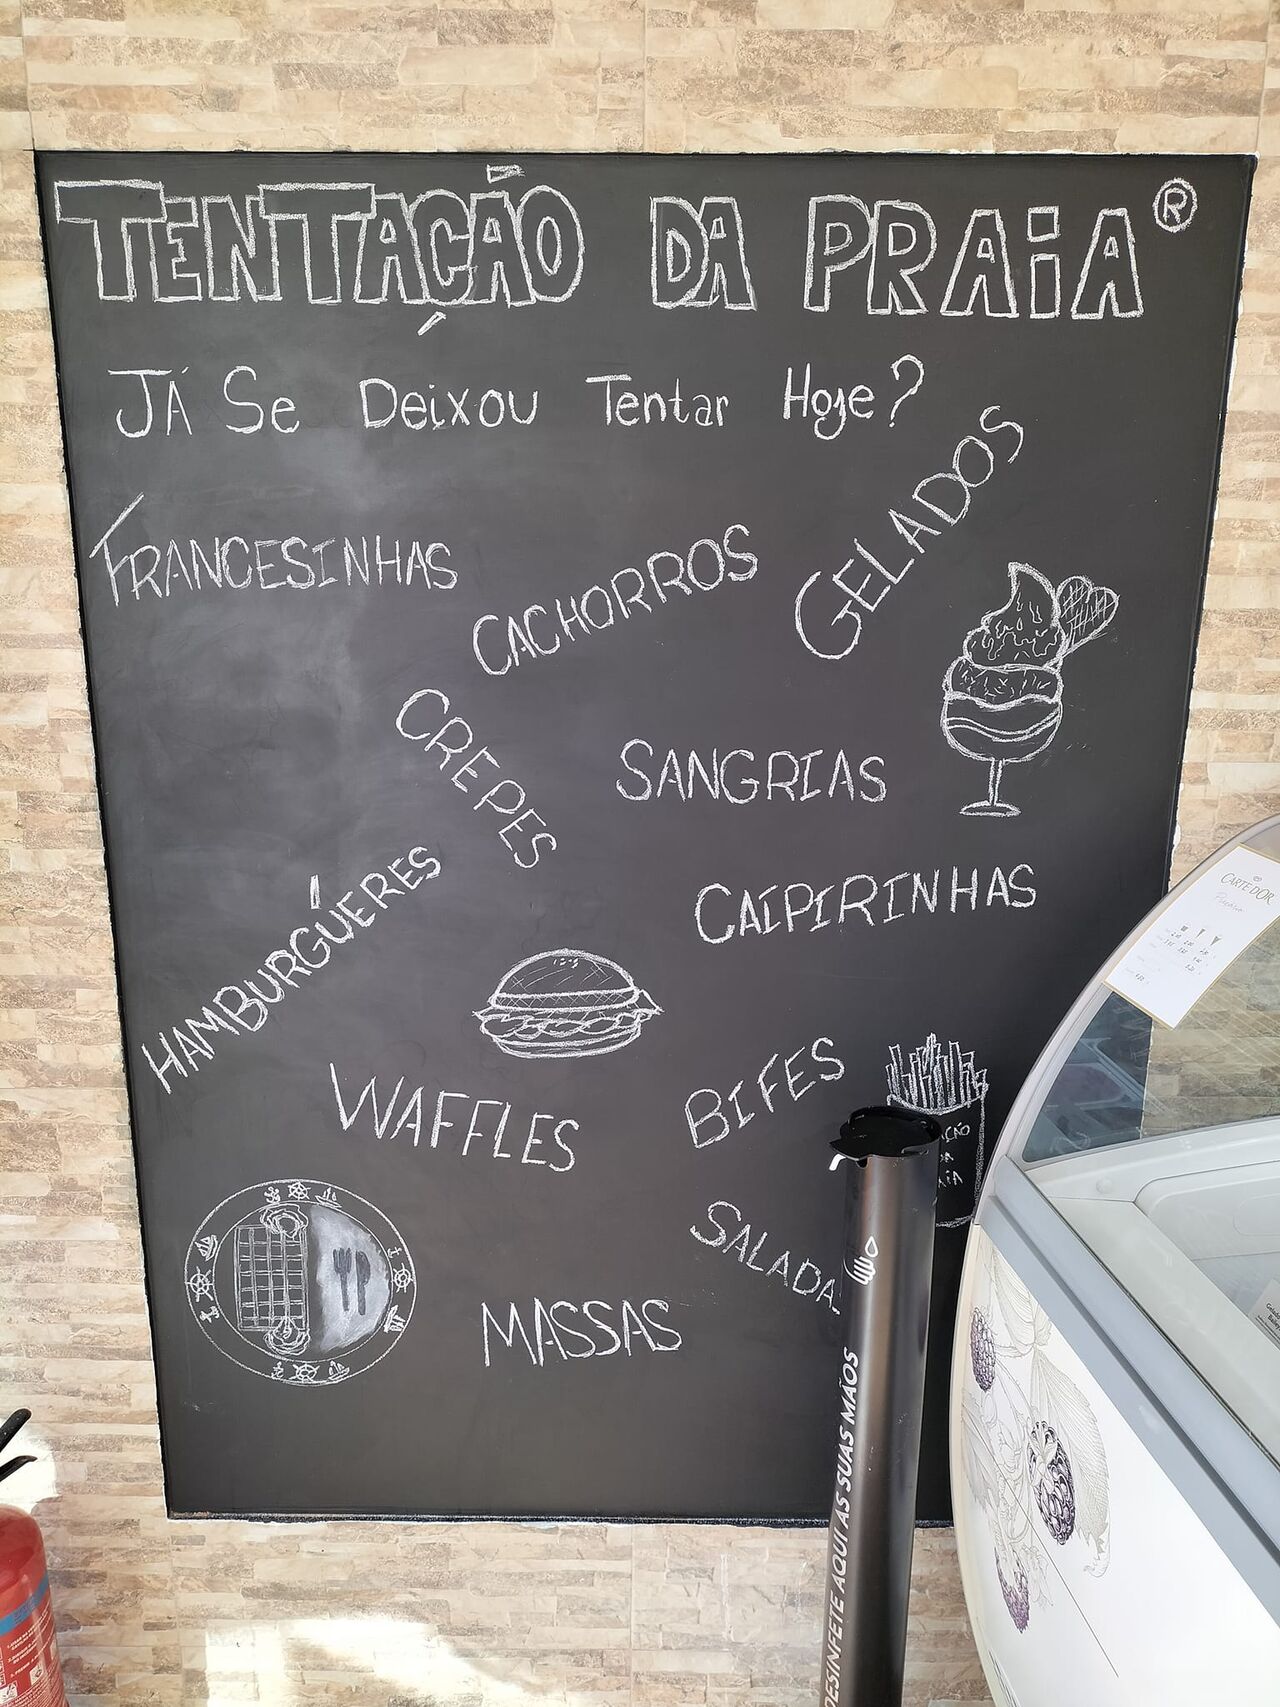 TENTAÇÃO DA PRAiA ®
JÁ Se Deixou Tentar Hoje?
FRANCESINHAS
CACHORROS
GELADOS
CREPES
SANGRIAS
HAMBURGÚERES
CAIPIRINHAS
WAFFLES
BIFES
SALADA
MASSAS
DESINFETE AQUI AS SUAS MÃOS
CARTE D'OR